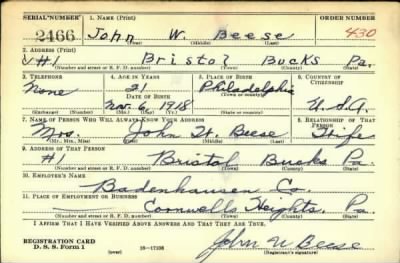 SERIAL NUMBER 1. NAME (Print) ORDER NUMBER
2466 John W. Beese 430
(First) (Middle) (Last)
2. ADDRESS (Print)
#1 Bristol Bucks Pa.
(Number and street or R. F. D. number) (Town) (County) (State)
3. TELEPHONE 4. AGE IN YEARS 5. PLACE OF BIRTH 6. COUNTRY OF CITIZENSHIP
None 21 Philadelphia
DATE OF BIRTH (Town or county)
Nov. 6, 1918 U.S.A
(Exchange) (Number) (Mo.) (Day) (Yr.) (State or country)
7. NAME OF PERSON WHO WILL ALWAYS KNOW YOUR ADDRESS 8. RELATIONSHIP OF THAT PERSON
Mrs. John W. Beese Wife
(Mr., Mrs., Miss) (First) (Middle) (Last)
9. ADDRESS OF THAT PERSON
#1 Bristol Bucks Pa.
(Number and street or R. F. D. number) (Town) (County) (State)
10. EMPLOYER'S NAME
Badenhausen Co.
11. PLACE OF EMPLOYMENT OR BUSINESS
Cornwells Heights, Pa.
(Number and street or R. F. D. number) (Town) (County) (State)
I AFFIRM THAT I HAVE VERIFIED ABOVE ANSWERS AND THAT THEY ARE TRUE.
REGISTRATION CARD
D. S. S. Form 1 (over) 16—17105 John W Beese
(Registrant's signature)